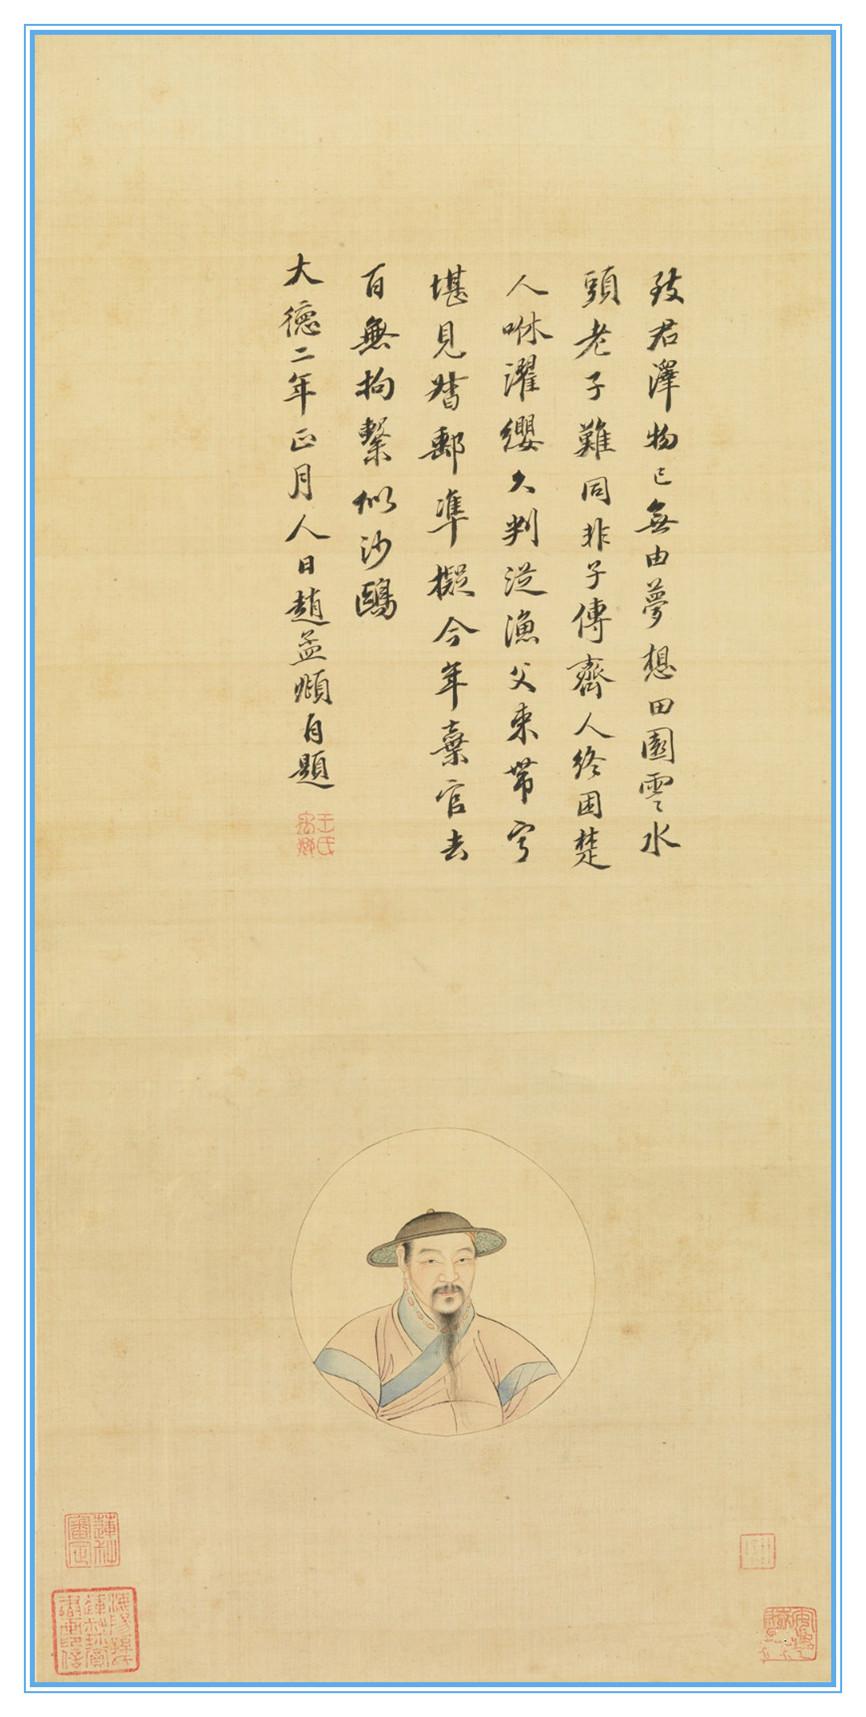 致君澤物已無由夢想田園雲水
頭老子難同非子傳齊人終困楚
人咻濯纓久判從漁父束帶寧
堪見督郵準擬今年棄官去
百無拘繫似沙鷗
大德二年正月人日趙孟頫自題